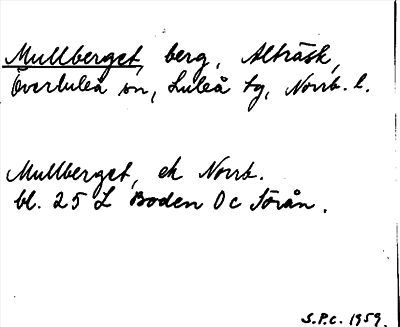 Mullberget, berg, Alträsk,
Överluleå sn, Luleå tg, Norrb. l.
Mullberget, ek Norrb.
bl. 25 L Boden 0c Torån.
S.P.C. 1959.